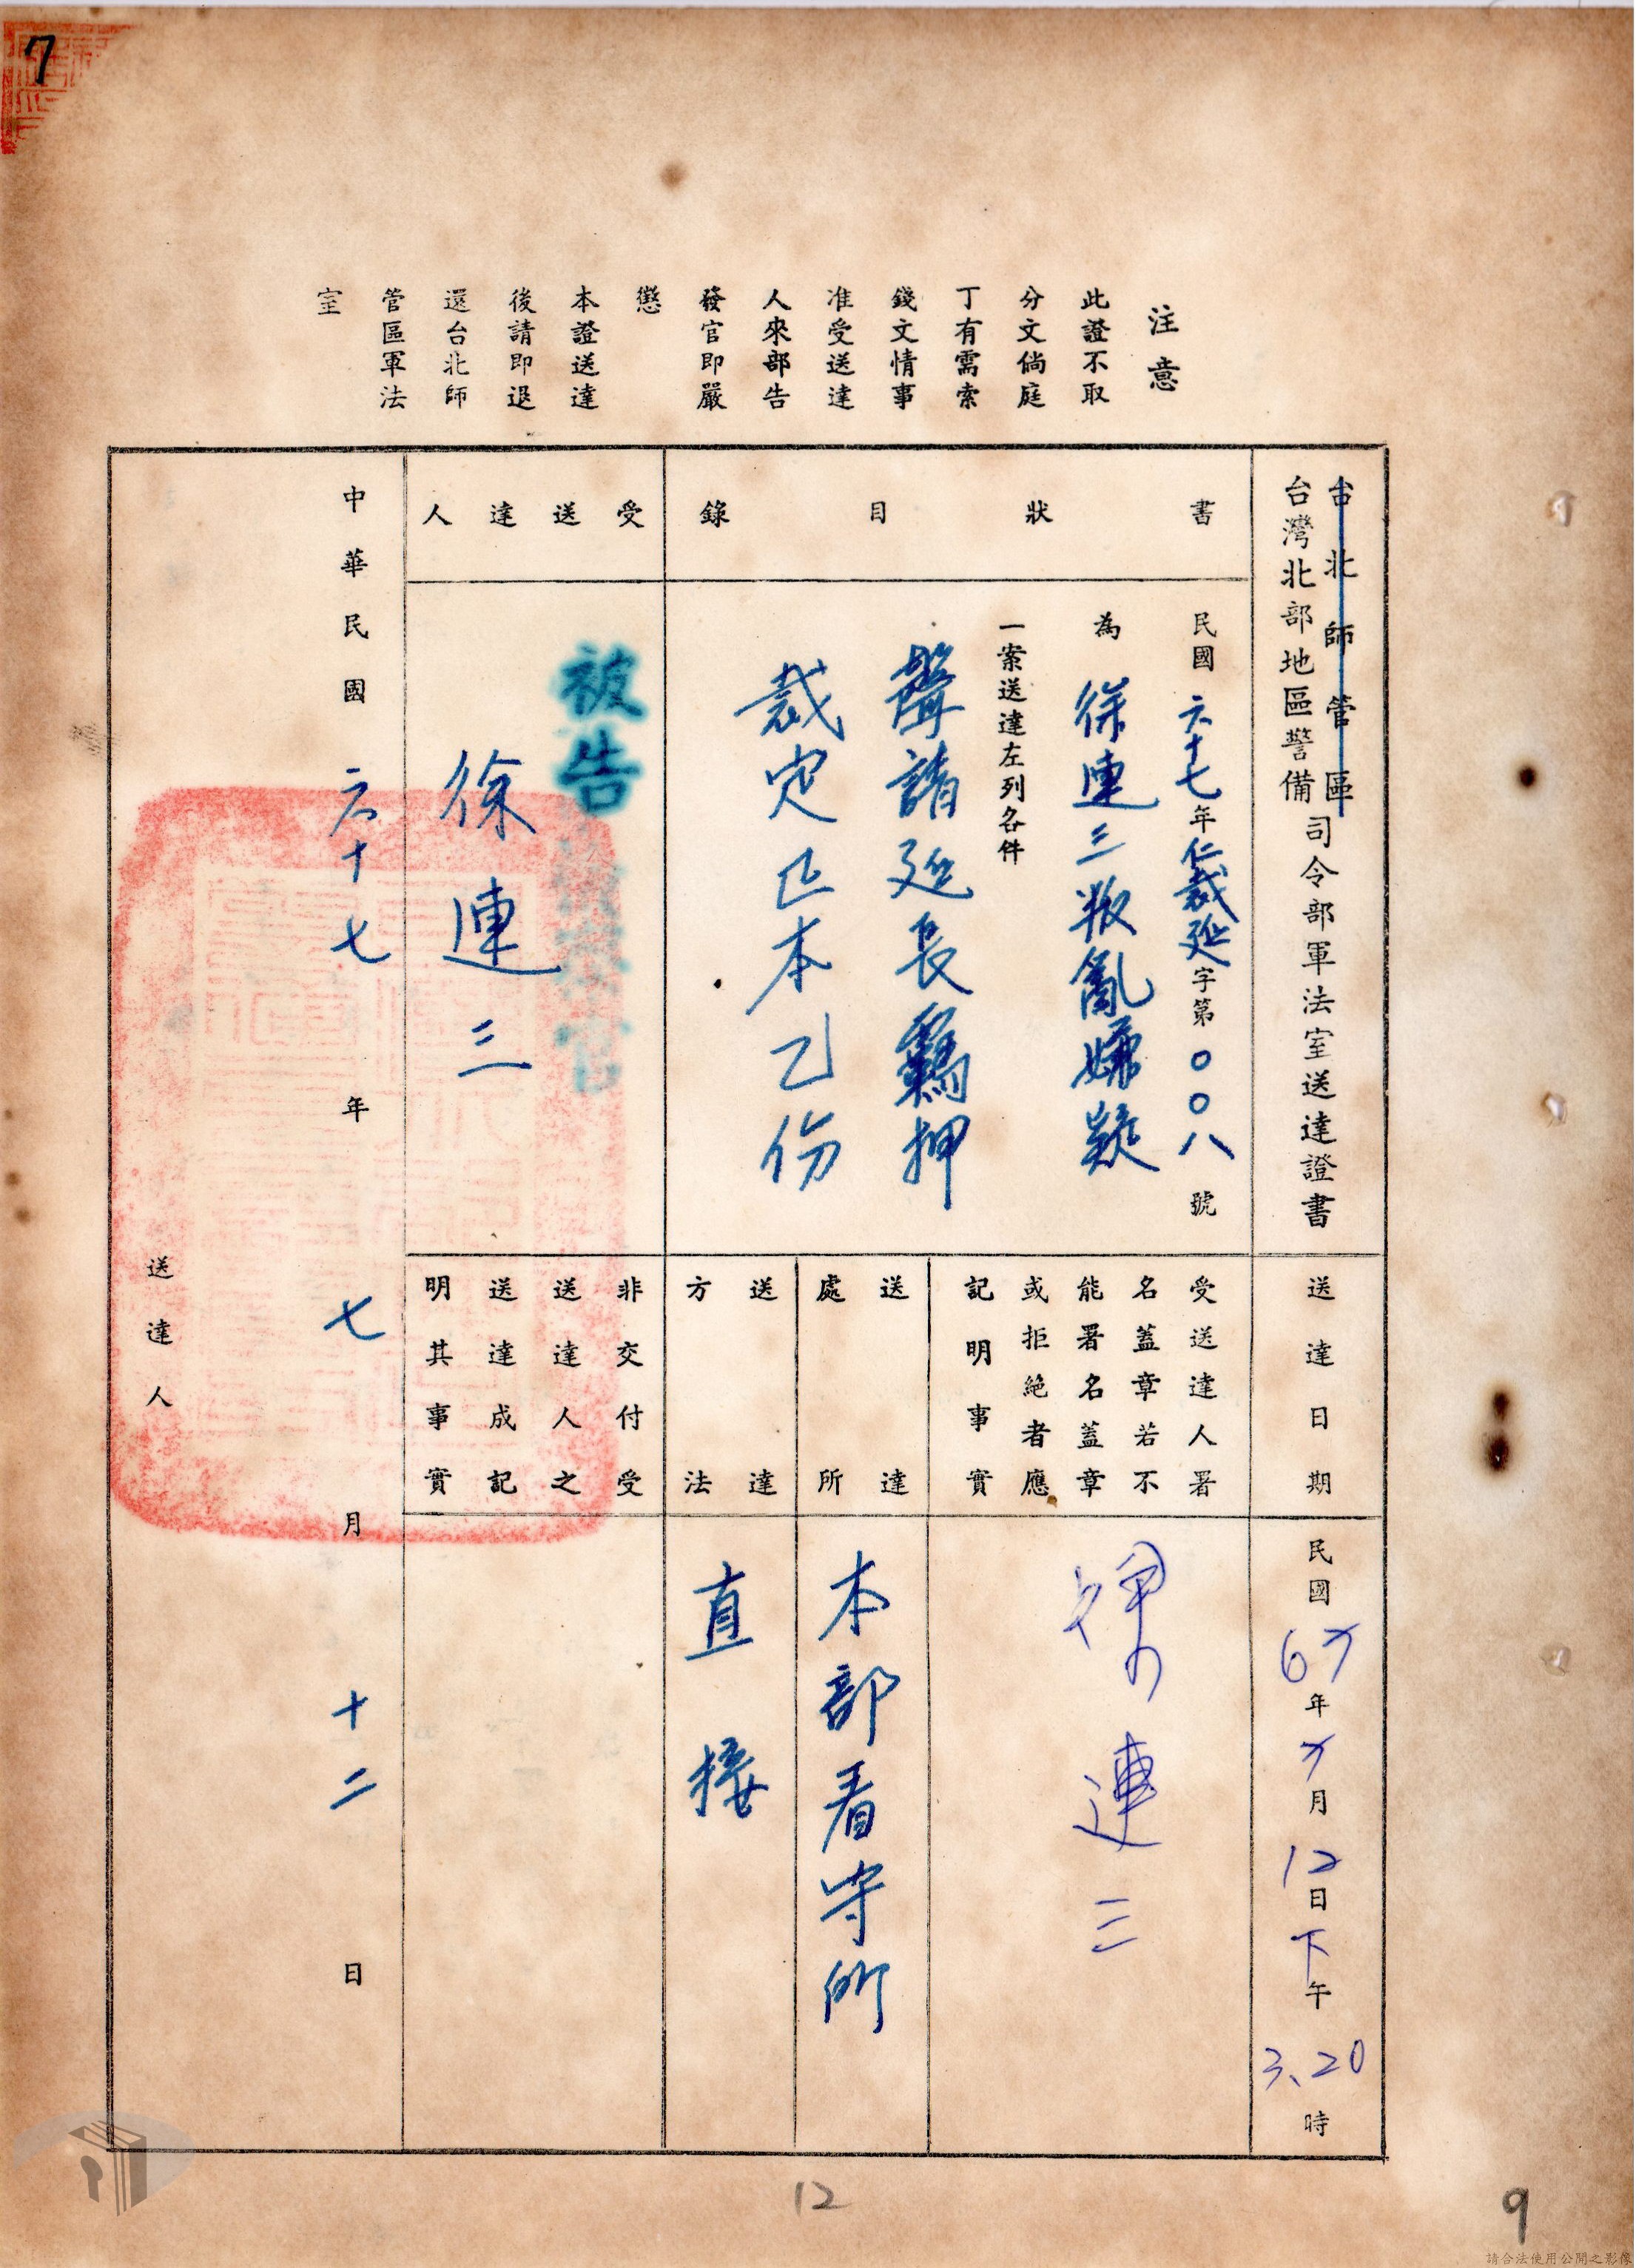 7
注意
此證不取
分文倘庭
丁有需索
錢文情事
准受送達
人來部告
發官即嚴
懲
本證送達
後請即退
還台北師
管區軍法
室
台北師管區
台灣北部地區警備
司令部軍法室送達證書
書狀目錄
民國六十七年仁裁延字第〇〇八號
為徐連三叛亂嫌疑
一案送達左列各件
聲請延長羈押
裁定正本乙份
受送達人
被告
徐連三
送達日期
民國67年7月12日下午3、20時
受送達人署
名蓋章若不
能署名蓋章
或拒絕者應
記明事實
徐連三
送達
處所
本部看守所
送達
方法
直接
非交付受
送達人之
送達成記
明其事實
中華民國六十七年七月十二日
送達人
12
9
請合法使用公開之影像